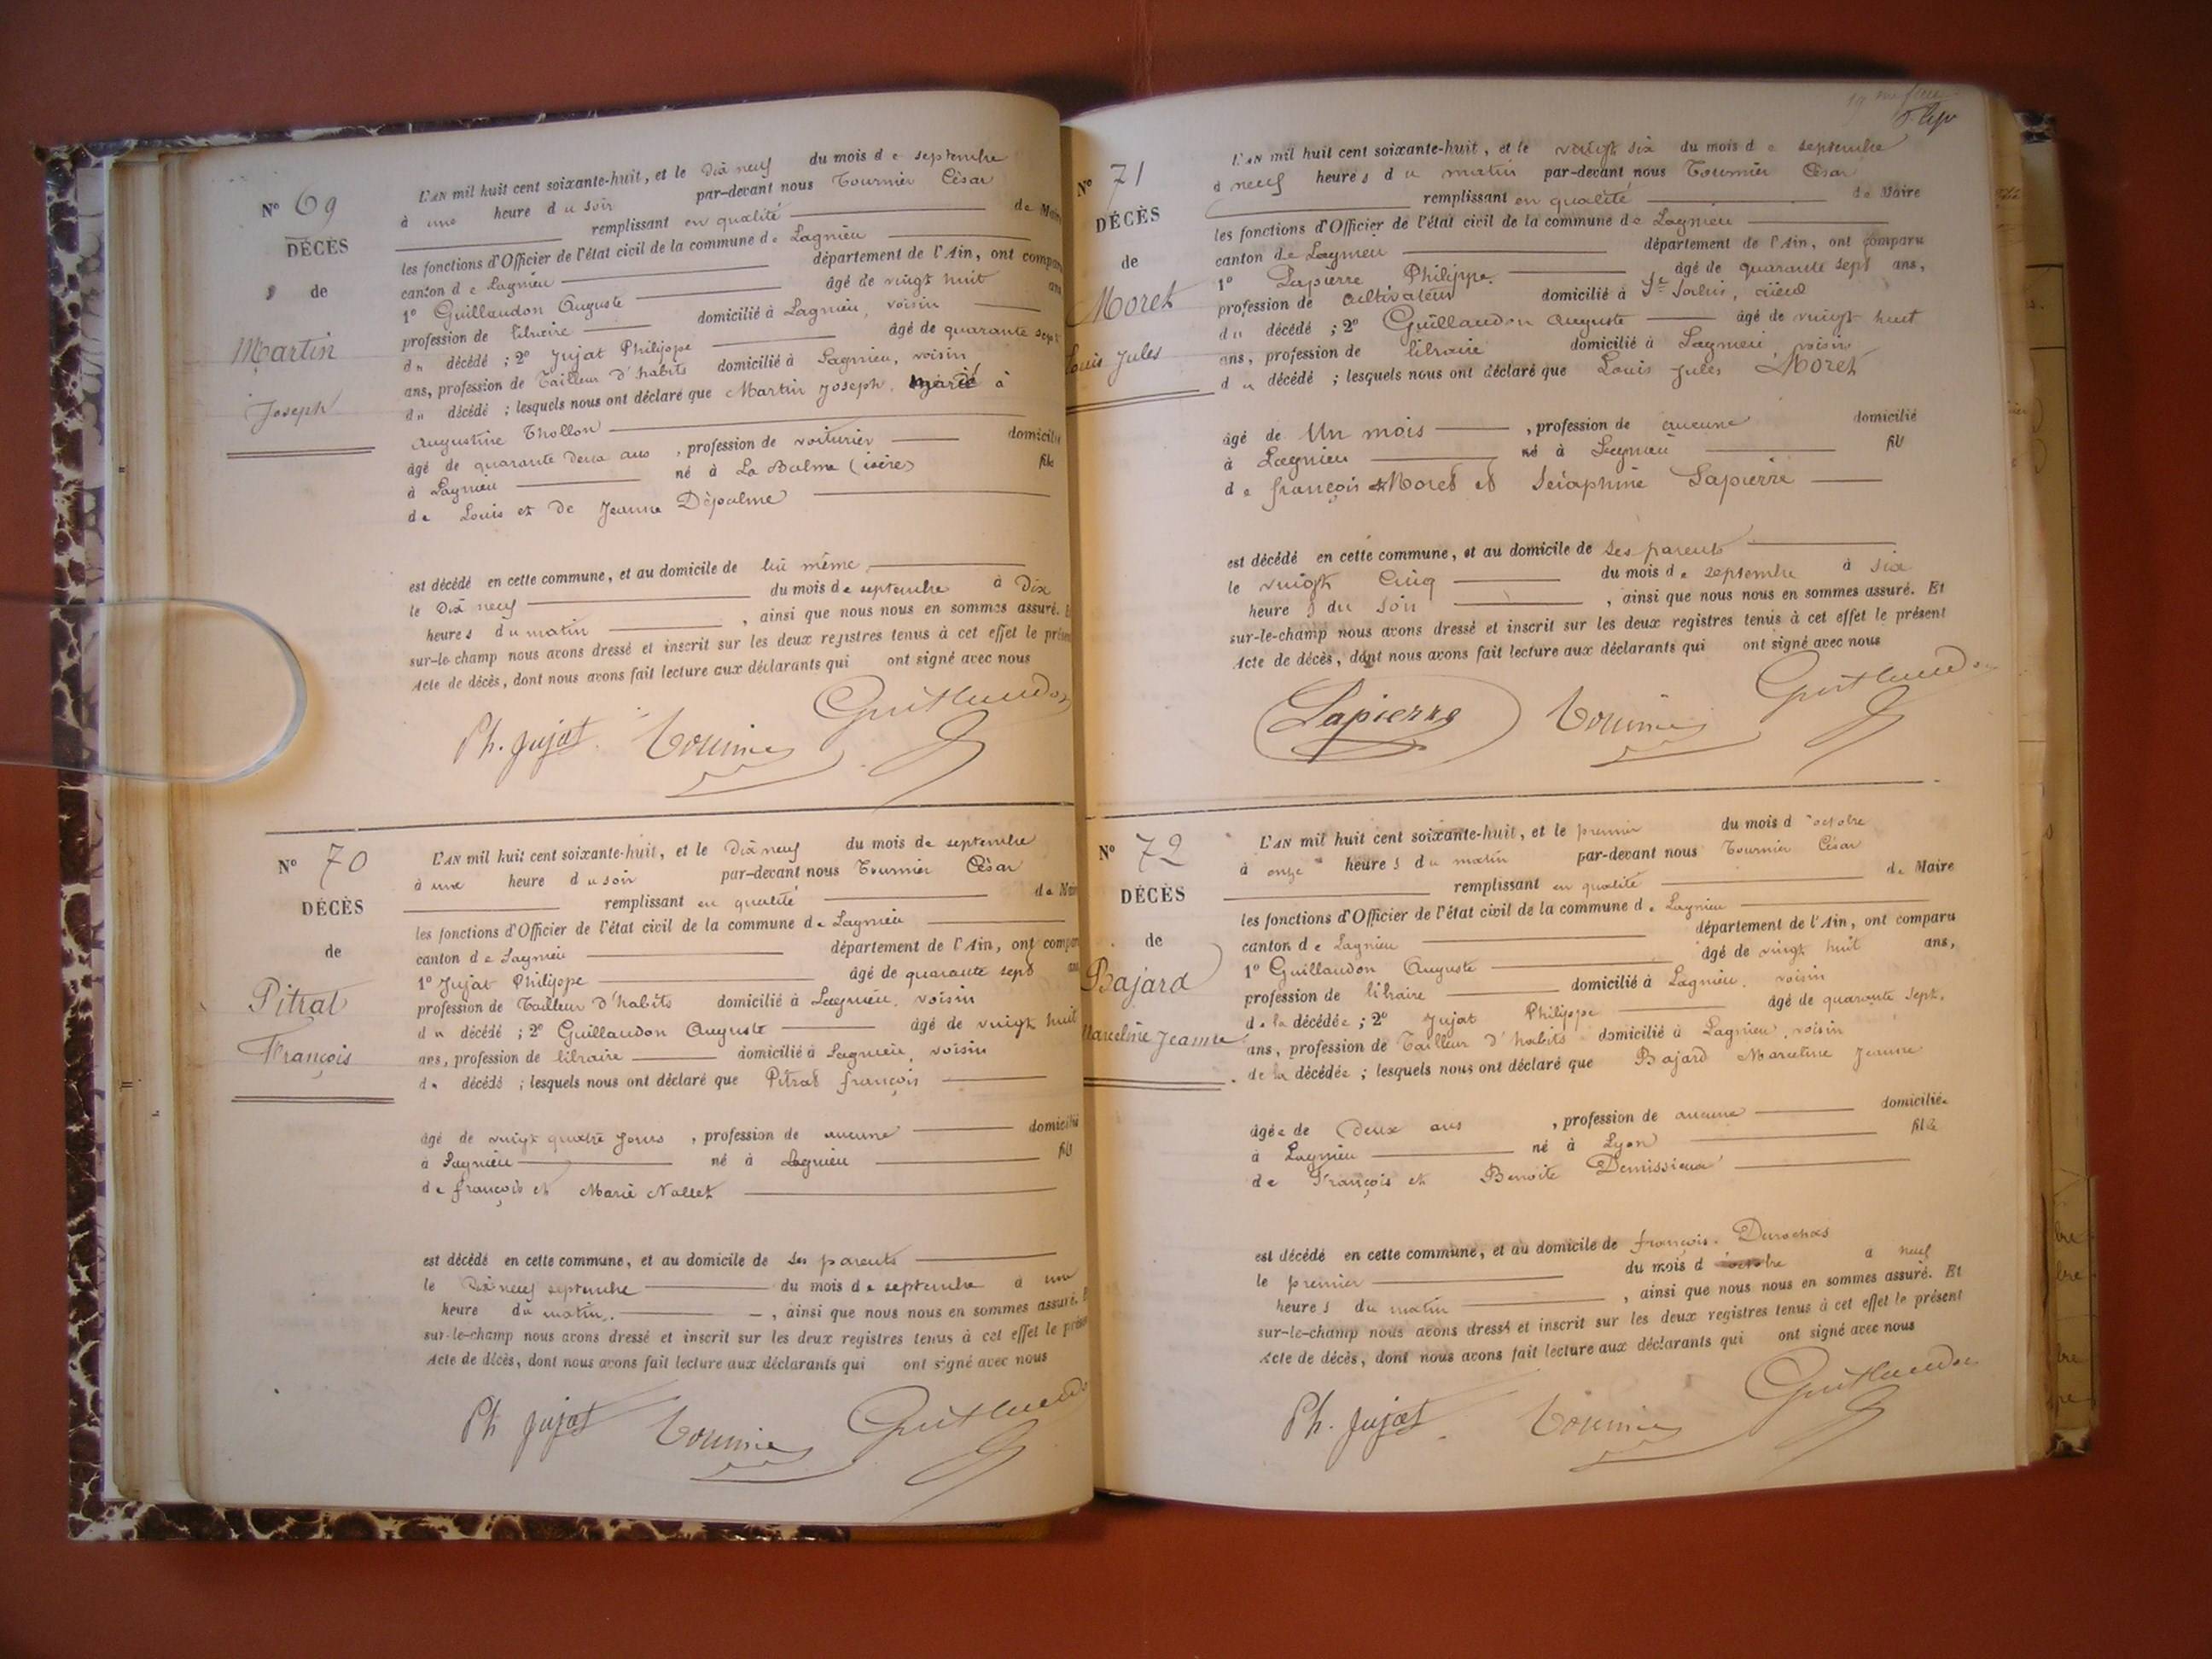 Nº 69
DÉCÈS
de
Martin
Joseph
L'AN mil huit cent soixante-huit, et le Dix neuf du mois de septembre
à une heure du soir par-devant nous Tournier César
remplissant en qualité de Maire
les fonctions d'Officier de l'état civil de la commune de Lagnieu
canton de Lagnieu département de l'Ain, ont comparu
1º Guillaudon Auguste âgé de vingt huit ans
profession de libraire domicilié à Lagnieu, voisin
du décédé ; 2º Jujat Philippe âgé de quarante sept
ans, profession de Tailleur d'habits domicilié à Lagnieu, voisin
du décédé ; lesquels nous ont déclaré que Martin Joseph, marié à
Augustine Thollon
âgé de quarante deux ans, profession de voiturier domicilié
à Lagnieu né à La Balme (isère) fils
de Louis et de Jeanne Dépalme
est décédé en cette commune, et au domicile de lui même,
le Dix neuf du mois de septembre à Dix
heures du matin, ainsi que nous nous en sommes assuré. Et
sur-le-champ nous avons dressé et inscrit sur les deux registres tenus à cet effet le présent
Acte de décès, dont nous avons fait lecture aux déclarants qui ont signé avec nous
Ph. Jujat Tournier Guillaudon
Nº 70
DÉCÈS
de
Pitrat
François
L'AN mil huit cent soixante-huit, et le Dix neuf du mois de septembre
à une heure du soir par-devant nous Tournier César
remplissant en qualité de Maire
les fonctions d'Officier de l'état civil de la commune de Lagnieu
canton de Lagnieu département de l'Ain, ont comparu
1º Jujat Philippe âgé de quarante sept ans
profession de Tailleur d'habits domicilié à Lagnieu, voisin
du décédé ; 2º Guillaudon Auguste âgé de vingt huit
ans, profession de libraire domicilié à Lagnieu, voisin
du décédé ; lesquels nous ont déclaré que Pitrat françois
âgé de vingt quatre jours, profession de aucune domicilié
à Lagnieu né à Lagnieu fils
de françois et Marie Nallet
est décédé en cette commune, et au domicile de ses parents
le Dix neuf septembre du mois de septembre à une
heure du matin, ainsi que nous nous en sommes assuré. Et
sur-le-champ nous avons dressé et inscrit sur les deux registres tenus à cet effet le présent
Acte de décès, dont nous avons fait lecture aux déclarants qui ont signé avec nous
Ph Jujat Tournier Guillaudon
Nº 71
DÉCÈS
de
Moret
Louis Jules
L'AN mil huit cent soixante-huit, et le vingt six du mois de septembre
à neuf heures du matin par-devant nous Tournier César
remplissant en qualité de Maire
les fonctions d'Officier de l'état civil de la commune de Lagnieu
canton de Lagnieu département de l'Ain, ont comparu
1º Lapierre Philippe âgé de quarante sept ans,
profession de cultivateur domicilié à St Sorlin, aïeul
du décédé ; 2º Guillaudon Auguste âgé de vingt huit
ans, profession de libraire domicilié à Lagnieu, voisin
du décédé ; lesquels nous ont déclaré que Louis Jules Moret
âgé de Un mois, profession de aucune domicilié
à Lagnieu né à Lagnieu fils
de françois Moret et Séraphine Lapierre
est décédé en cette commune, et au domicile de ses parents
le vingt Cinq du mois de septembre à six
heures du soir, ainsi que nous nous en sommes assuré. Et
sur-le-champ nous avons dressé et inscrit sur les deux registres tenus à cet effet le présent
Acte de décès, dont nous avons fait lecture aux déclarants qui ont signé avec nous
Lapierre Tournier Guillaudon
Nº 72
DÉCÈS
de
Bajard
Marceline Jeanne
L'AN mil huit cent soixante-huit, et le premier du mois d'octobre
à onze heures du matin par-devant nous Tournier César
remplissant en qualité de Maire
les fonctions d'Officier de l'état civil de la commune de Lagnieu
canton de Lagnieu département de l'Ain, ont comparu
1º Guillaudon Auguste âgé de vingt huit ans,
profession de libraire domicilié à Lagnieu, voisin
de la décédée ; 2º Jujat Philippe âgé de quarante sept,
ans, profession de Tailleur d'habits domicilié à Lagnieu, voisin
de la décédée ; lesquels nous ont déclaré que Bajard Marceline Jeanne
âgée de Deux ans, profession de aucune domiciliée
à Lagnieu né à Lyon fille
de François et Benoite Demissieux
est décédé en cette commune, et au domicile de françois Durochas
le premier du mois d'octobre à neuf
heures du matin, ainsi que nous nous en sommes assuré. Et
sur-le-champ nous avons dressé et inscrit sur les deux registres tenus à cet effet le présent
Acte de décès, dont nous avons fait lecture aux déclarants qui ont signé avec nous
Ph. Jujat Tournier Guillaudon